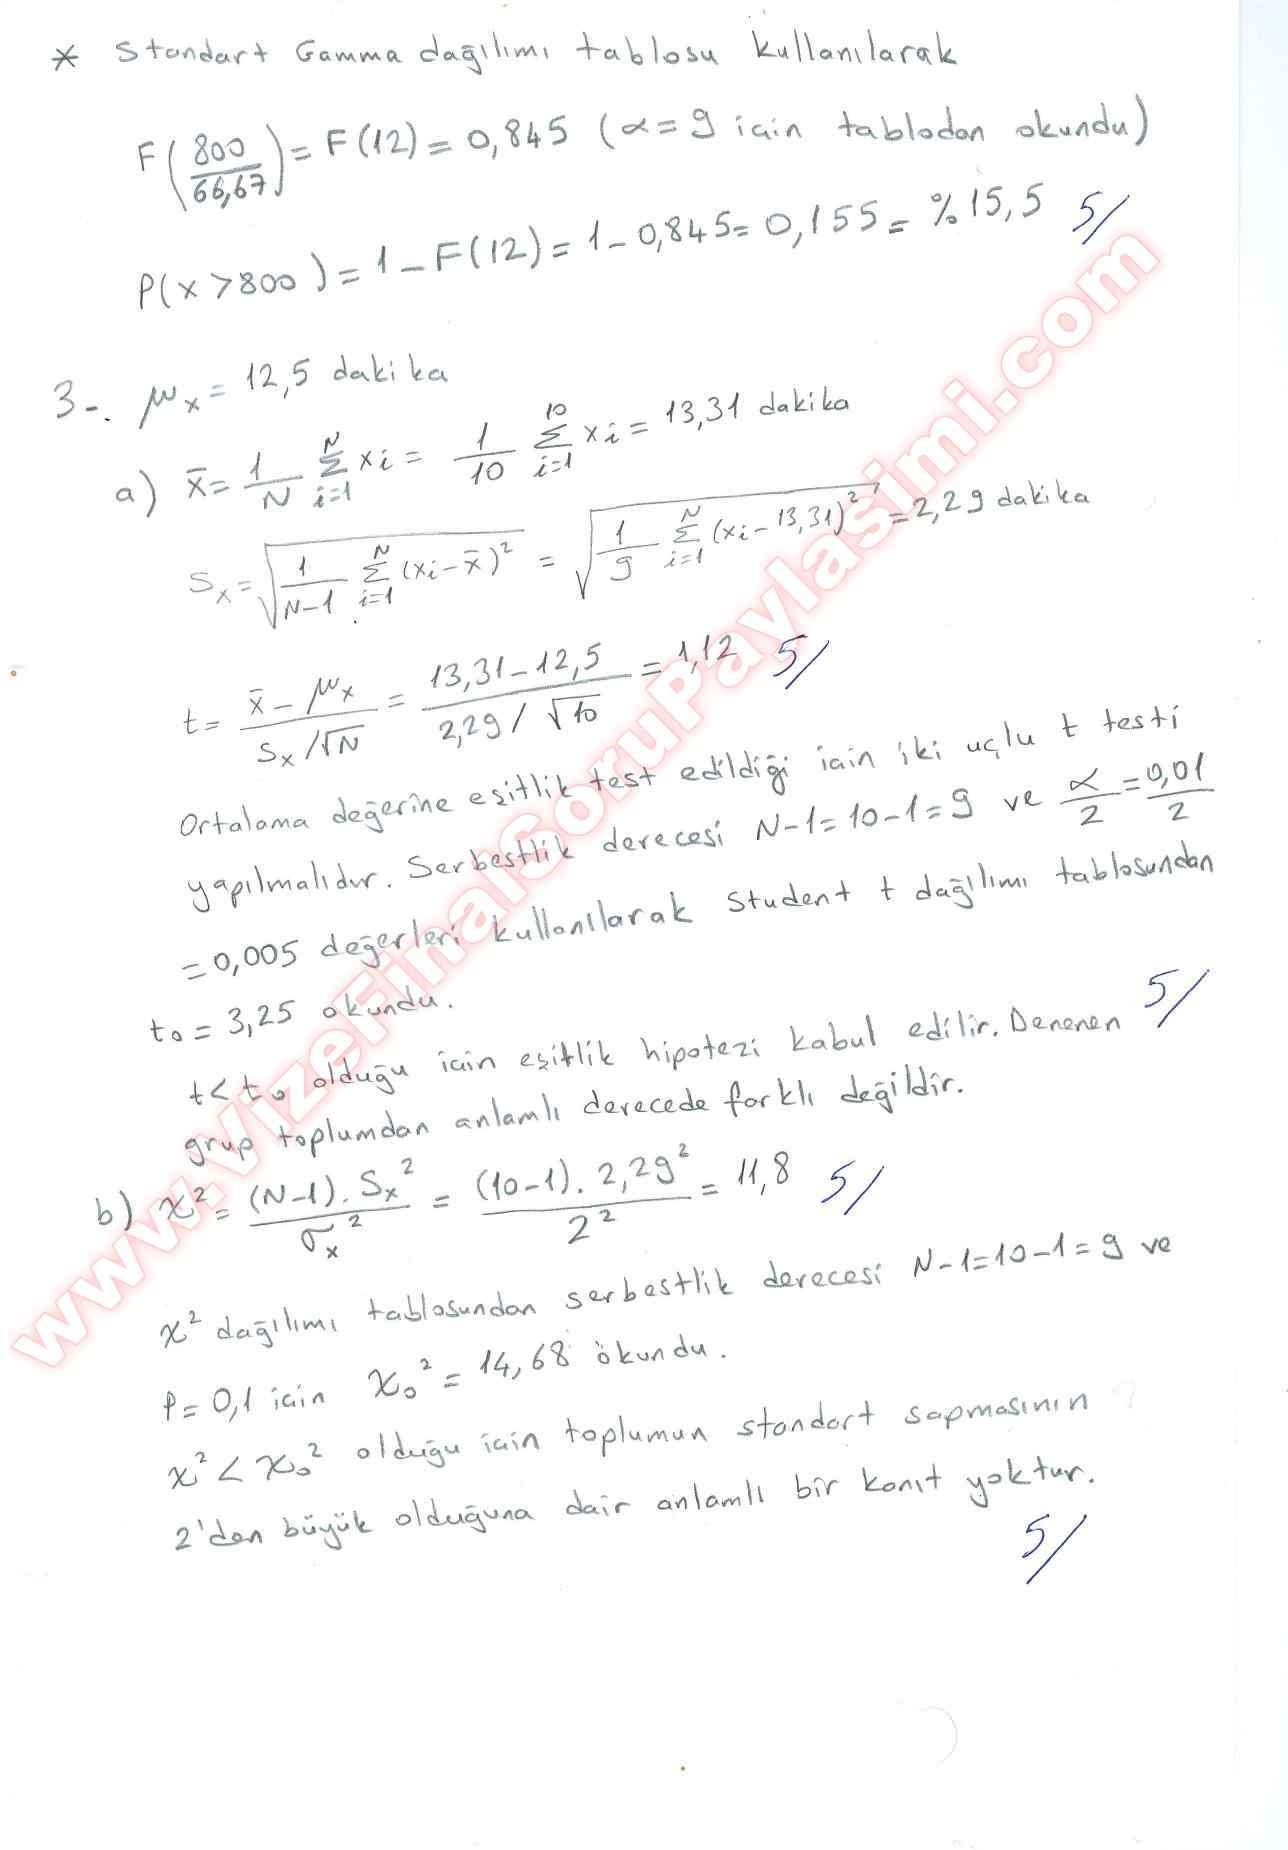 * Standart Gamma dağılımı tablosu kullanılarak
F(800/66,67) = F(12) = 0,845 (α = 9 için tablodan okundu)
P(x > 800) = 1 - F(12) = 1 - 0,845 = 0,155 = %15,5 5/
3-. μx = 12,5 dakika
a) x̄ = 1/N Σ_{i=1}^{N} xi = 1/10 Σ_{i=1}^{10} xi = 13,31 dakika
Sx = √(1/(N-1) Σ_{i=1}^{N} (xi - x̄)²) = √(1/9 Σ_{i=1}^{N} (xi - 13,31)²) = 2,29 dakika
t = (x̄ - μx)/(Sx/√N) = (13,31 - 12,5)/(2,29/√10) = 1,12 5/
Ortalama değerine eşitlik test edildiği için iki uçlu t testi
yapılmalıdır. Serbestlik derecesi N-1 = 10-1 = 9 ve α/2 = 0,01/2
= 0,005 değerleri kullanılarak Student t dağılımı tablosundan
t₀ = 3,25 okundu. 5/
t < t₀ olduğu için eşitlik hipotezi kabul edilir. Denenen
grup toplumdan anlamlı derecede farklı değildir.
b) χ² = (N-1).Sx²/σx² = (10-1).2,29²/2² = 11,8 5/
χ² dağılımı tablosundan serbestlik derecesi N-1 = 10-1 = 9 ve
P = 0,1 için χ₀² = 14,68 okundu.
χ² < χ₀² olduğu için toplumun standart sapmasının
2'den büyük olduğuna dair anlamlı bir kanıt yoktur.
5/
www.VizeFinalSoruPaylasimi.com